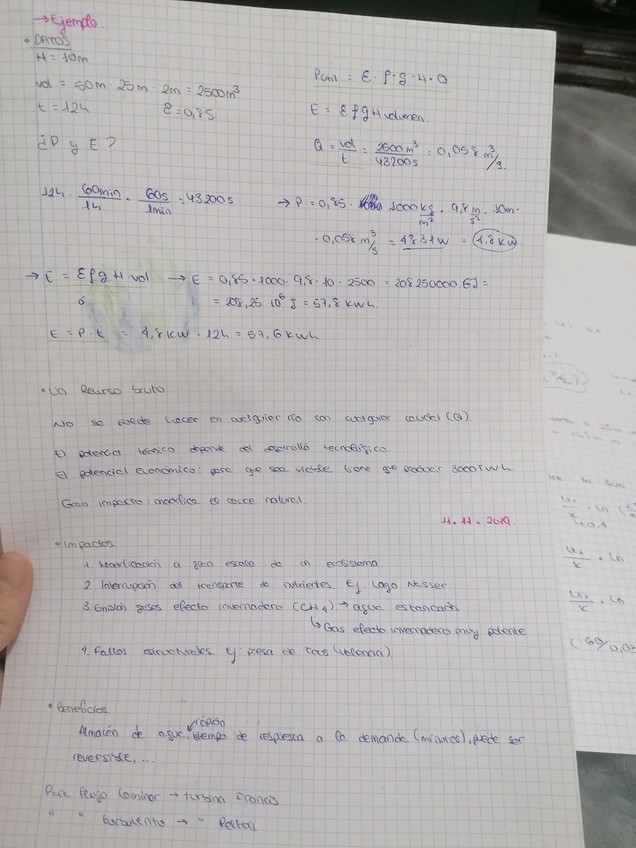 → Ejemplo.
• DATOS
H = 10m
vol = 50m · 25m · 2m = 2500m³
t = 12h    ε = 0,85
¿P y E?
Putil = ε · ρ · g · H · Q
E = ε ρ g H volumen.
Q = vol/t = 2500m³/43200s = 0,058 m³/s.
12h · 60min/1h · 60s/1min = 43200s
→ P = 0,85 · 1000 kg/m³ · 9,8 m/s² · 10m ·
· 0,058 m³/s = 4831W = 4,8 KW
→ E = ε ρ g H vol → E = 0,85 · 1000 · 9,8 · 10 · 2500 = 208250000 J =
ó = 208,25 · 10⁶ J = 57,8 KWh.
E = P · t = 4,8KW · 12h = 57,6 KWh
• Un Recurso bruto
No se puede hacer en cualquier río con cualquier caudal (Q).
1) potencial técnico depende del desarrollo tecnológico.
2) potencial económico: para que sea viable tiene que producir 3000TWh
Gran impacto: modifica el cauce natural.
11. 11. 2019
• Impactos
1. Modificación a gran escala de un ecosistema
2. Interrupción del transporte de nutrientes. Ej Lago Nasser
3. Emisión gases efecto invernadero (CH₄) → agua estancada
↳ Gas efecto invernadero muy potente
4. Fallos estructurales Ej: presa de Tous (Valencia)
• Beneficios.
Almacén de agua, rápido tiempo de respuesta a la demanda (minutos), puede ser
reversible, ...
Para flujo laminar → turbina Francis
" " turbulento → " Pelton